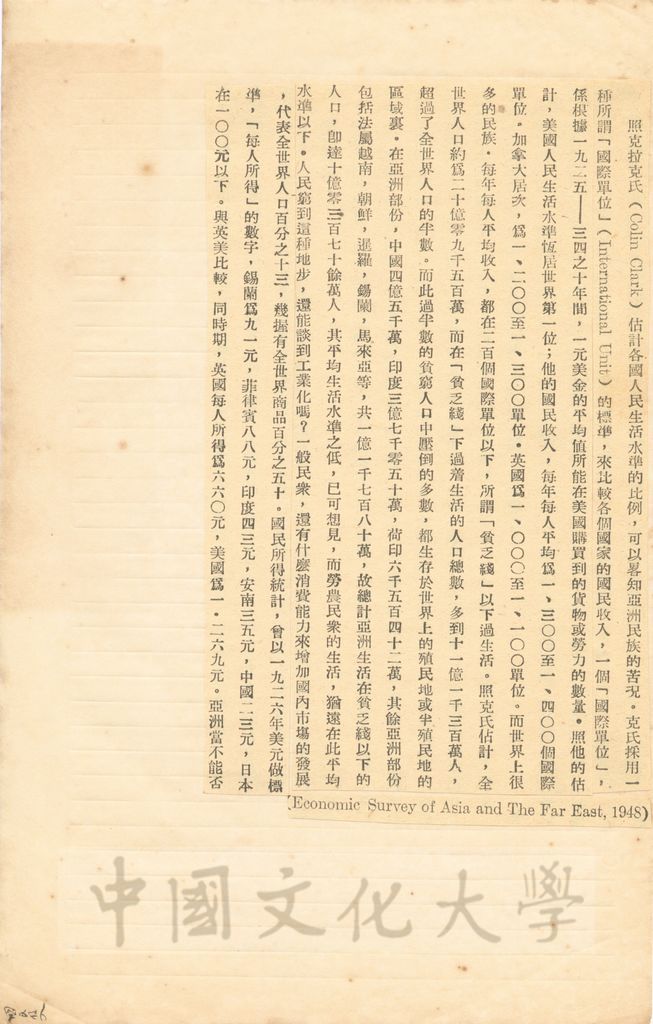 照克拉克氏(Colin Clark)估計各國人民生活水準的比例,可以畧知亞洲民族的苦況。克氏採用一
種所謂「國際單位」(International Unit)的標準,來比較各個國家的國民收入,一個「國際單位」,
係根據一九二五——三四之十年間,一元美金的平均值所能在美國購買到的貨物或勞力的數量。照他的估
計,美國人民生活水準恆居世界第一位;他的國民收入,每年每人平均爲一、三〇〇至一、四〇〇個國際
單位。加拿大居次,爲一、二〇〇至一、三〇〇單位。英國爲一、〇〇〇至一、一〇〇單位。而世界上很
多的民族,每年每人平均收入,都在二百個國際單位以下,所謂「貧乏綫」以下過生活。照克氏估計,全
世界人口約爲二十億零九千五百萬,而在「貧乏綫」下過着生活的人口總數,多到十一億一千三百萬人,
超過了全世界人口的半數。而此過半數的貧窮人口中壓倒的多數,都生存於世界上的殖民地或半殖民地的
區域裏。在亞洲部份,中國四億五千萬,印度三億七千零五十萬,荷印六千五百四十二萬,其餘亞洲部份
包括法屬越南,朝鮮,暹羅,錫蘭,馬來亞等,共一億一千七百八十萬,故總計亞洲生活在貧乏綫以下的
人口,卽達十億零三百七十餘萬人,其平均生活水準之低,已可想見,而勞農民衆的生活,猶遠在此平均
水準以下。人民窮到這種地步,還能談到工業化嗎?一般民衆,還有什麼消費能力來增加國內市場的發展
,代表全世界人口百分之十三,幾握有全世界商品百分之五十。國民所得統計,曾以一九二六年美元做標
準,「每人所得」的數字,錫蘭爲九一元,菲律賓八八元,印度四三元,安南三五元,中國二三元,日本
在一〇〇元以下。與英美比較,同時期,英國每人所得爲六六〇元,美國爲一・二六九元。亞洲當不能否
(Economic Survey of Asia and The Far East, 1948)
中國文化大學